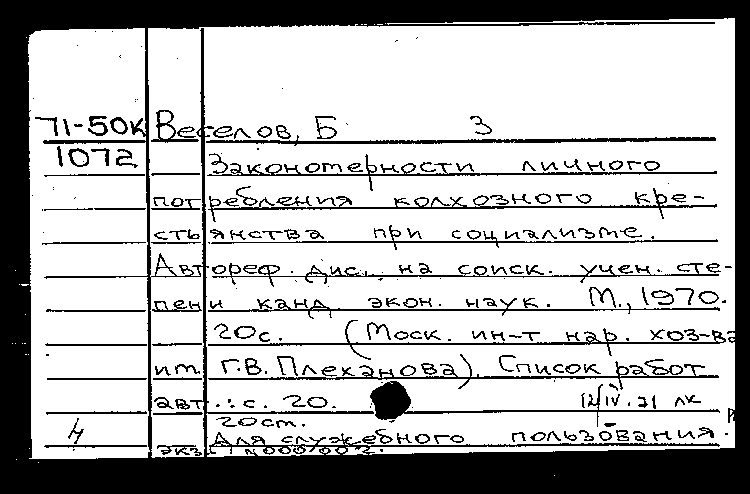 71-50к Веселов, Б З
1072 Закономерности личного
потребления колхозного кре-
стьянства при социализме.
Автореф. дис. на соиск. учен. сте-
пени канд. экон. наук. М., 1970.
20с. (Моск. ин-т нар. хоз-ва
им. Г.В. Плеханова). Список работ
авт.: с. 20. 12/IV.71 лк
20см.
Для служебного пользования.
экз.